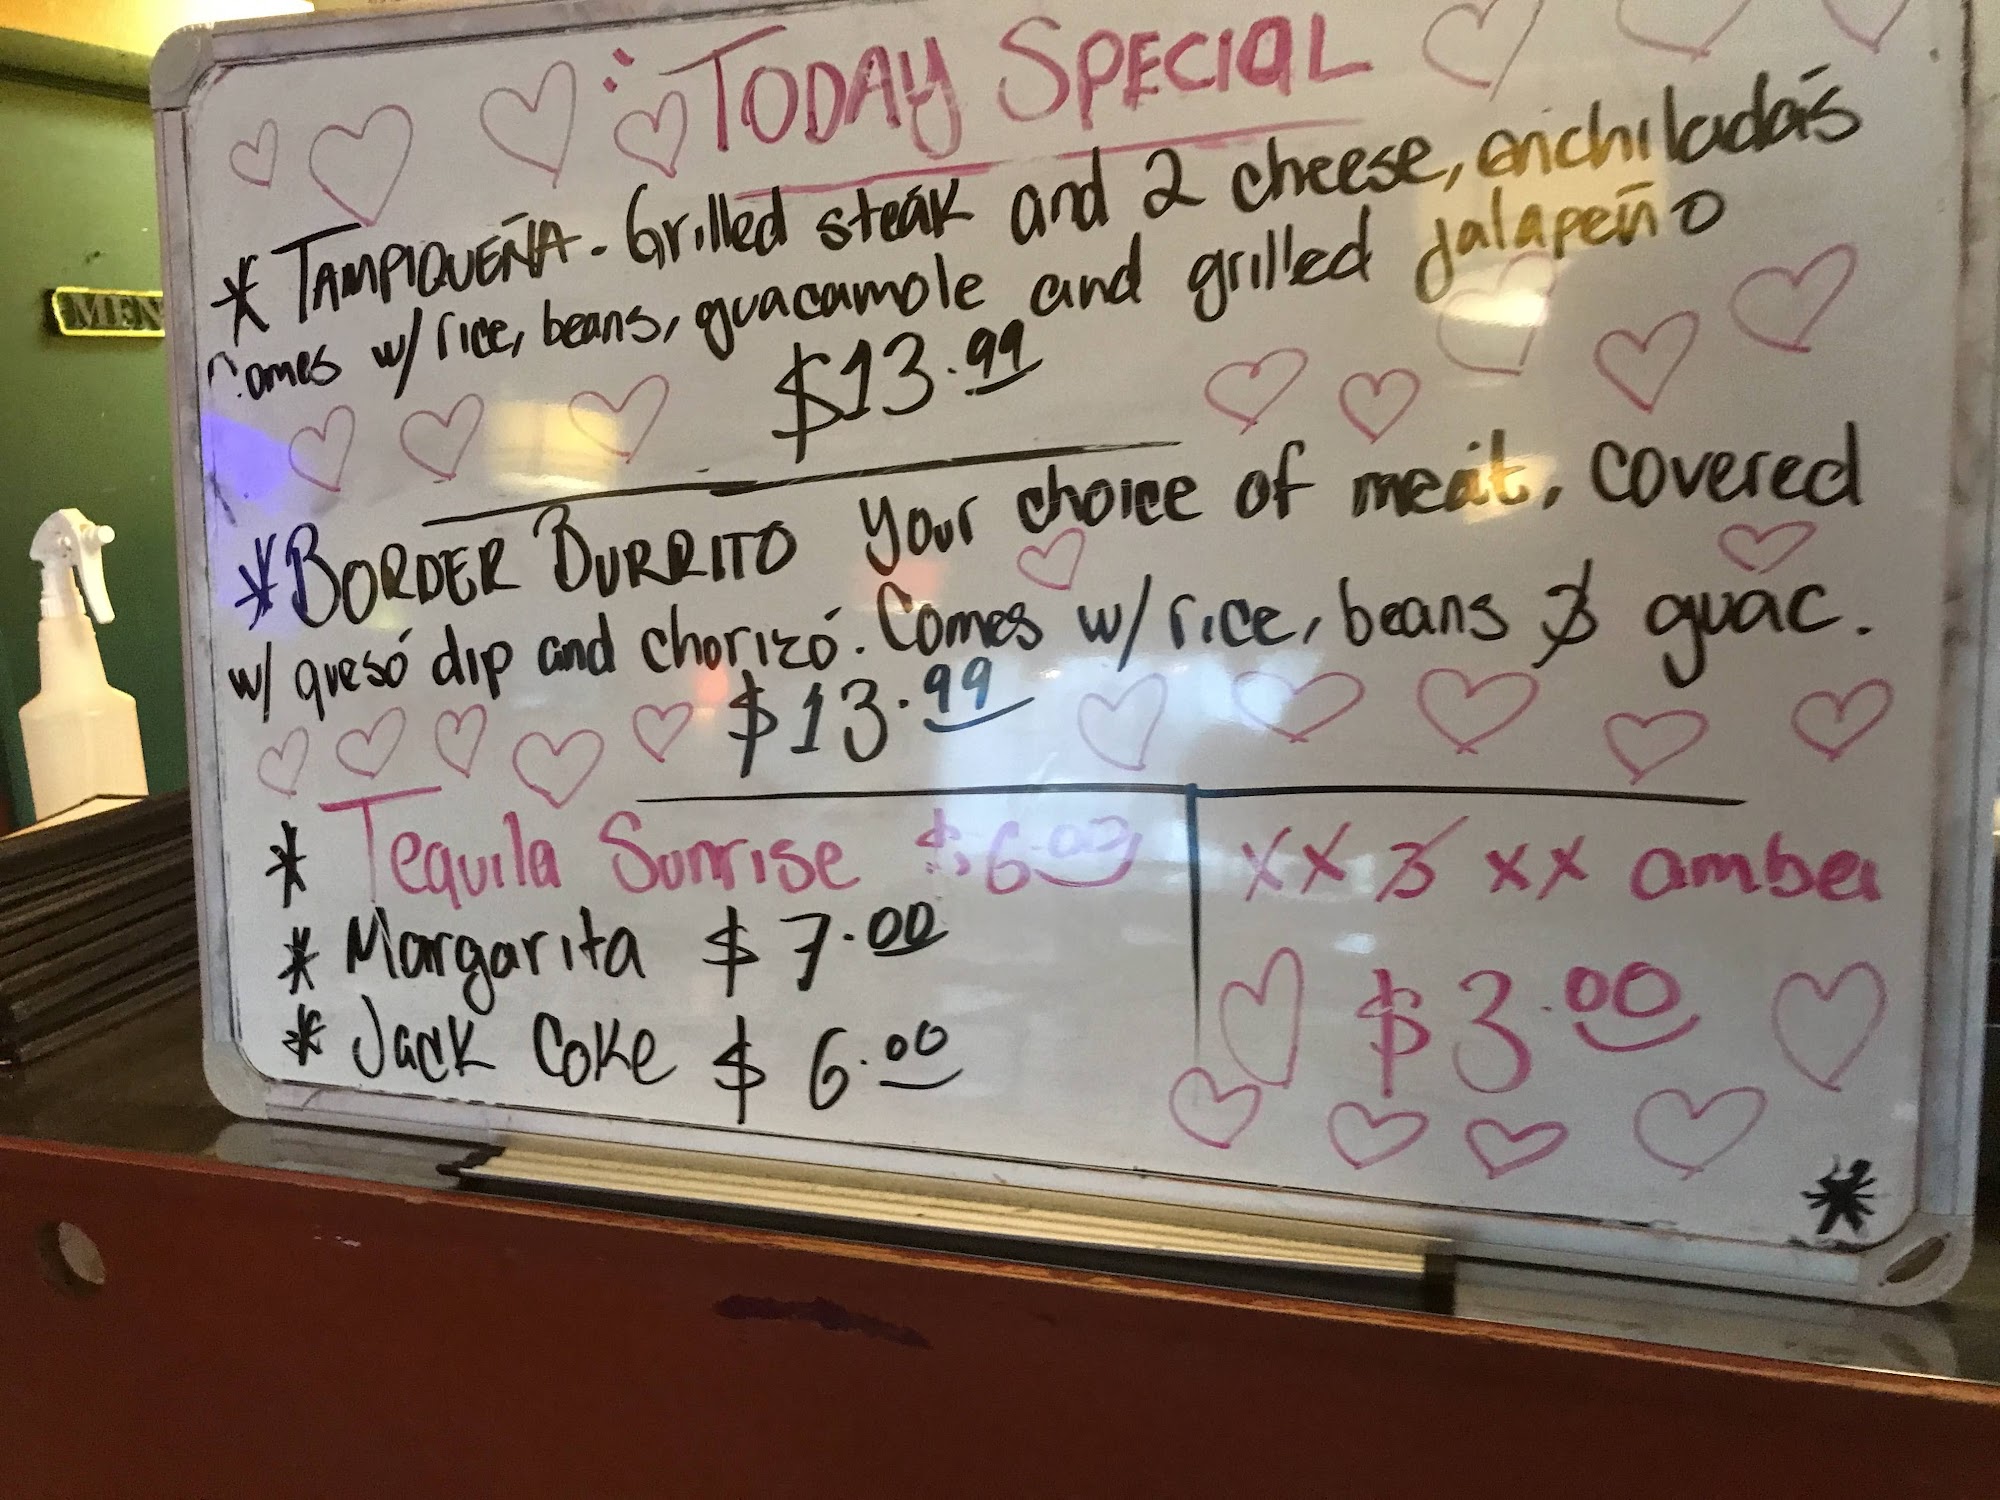 MEN
TODAY SPECIAL
* TAMPIQUEÑA - Grilled steak and 2 cheese, enchiladas
comes w/ rice, beans, guacamole and grilled jalapeño
$13.99
* BORDER BURRITO Your choice of meat, covered
w/ quesó dip and chorizó. Comes w/ rice, beans & guac.
$13.99
* Tequila Sunrise $6.00
* Margarita $7.00
* Jack Coke $6.00
XX & XX amber
$3.00
*